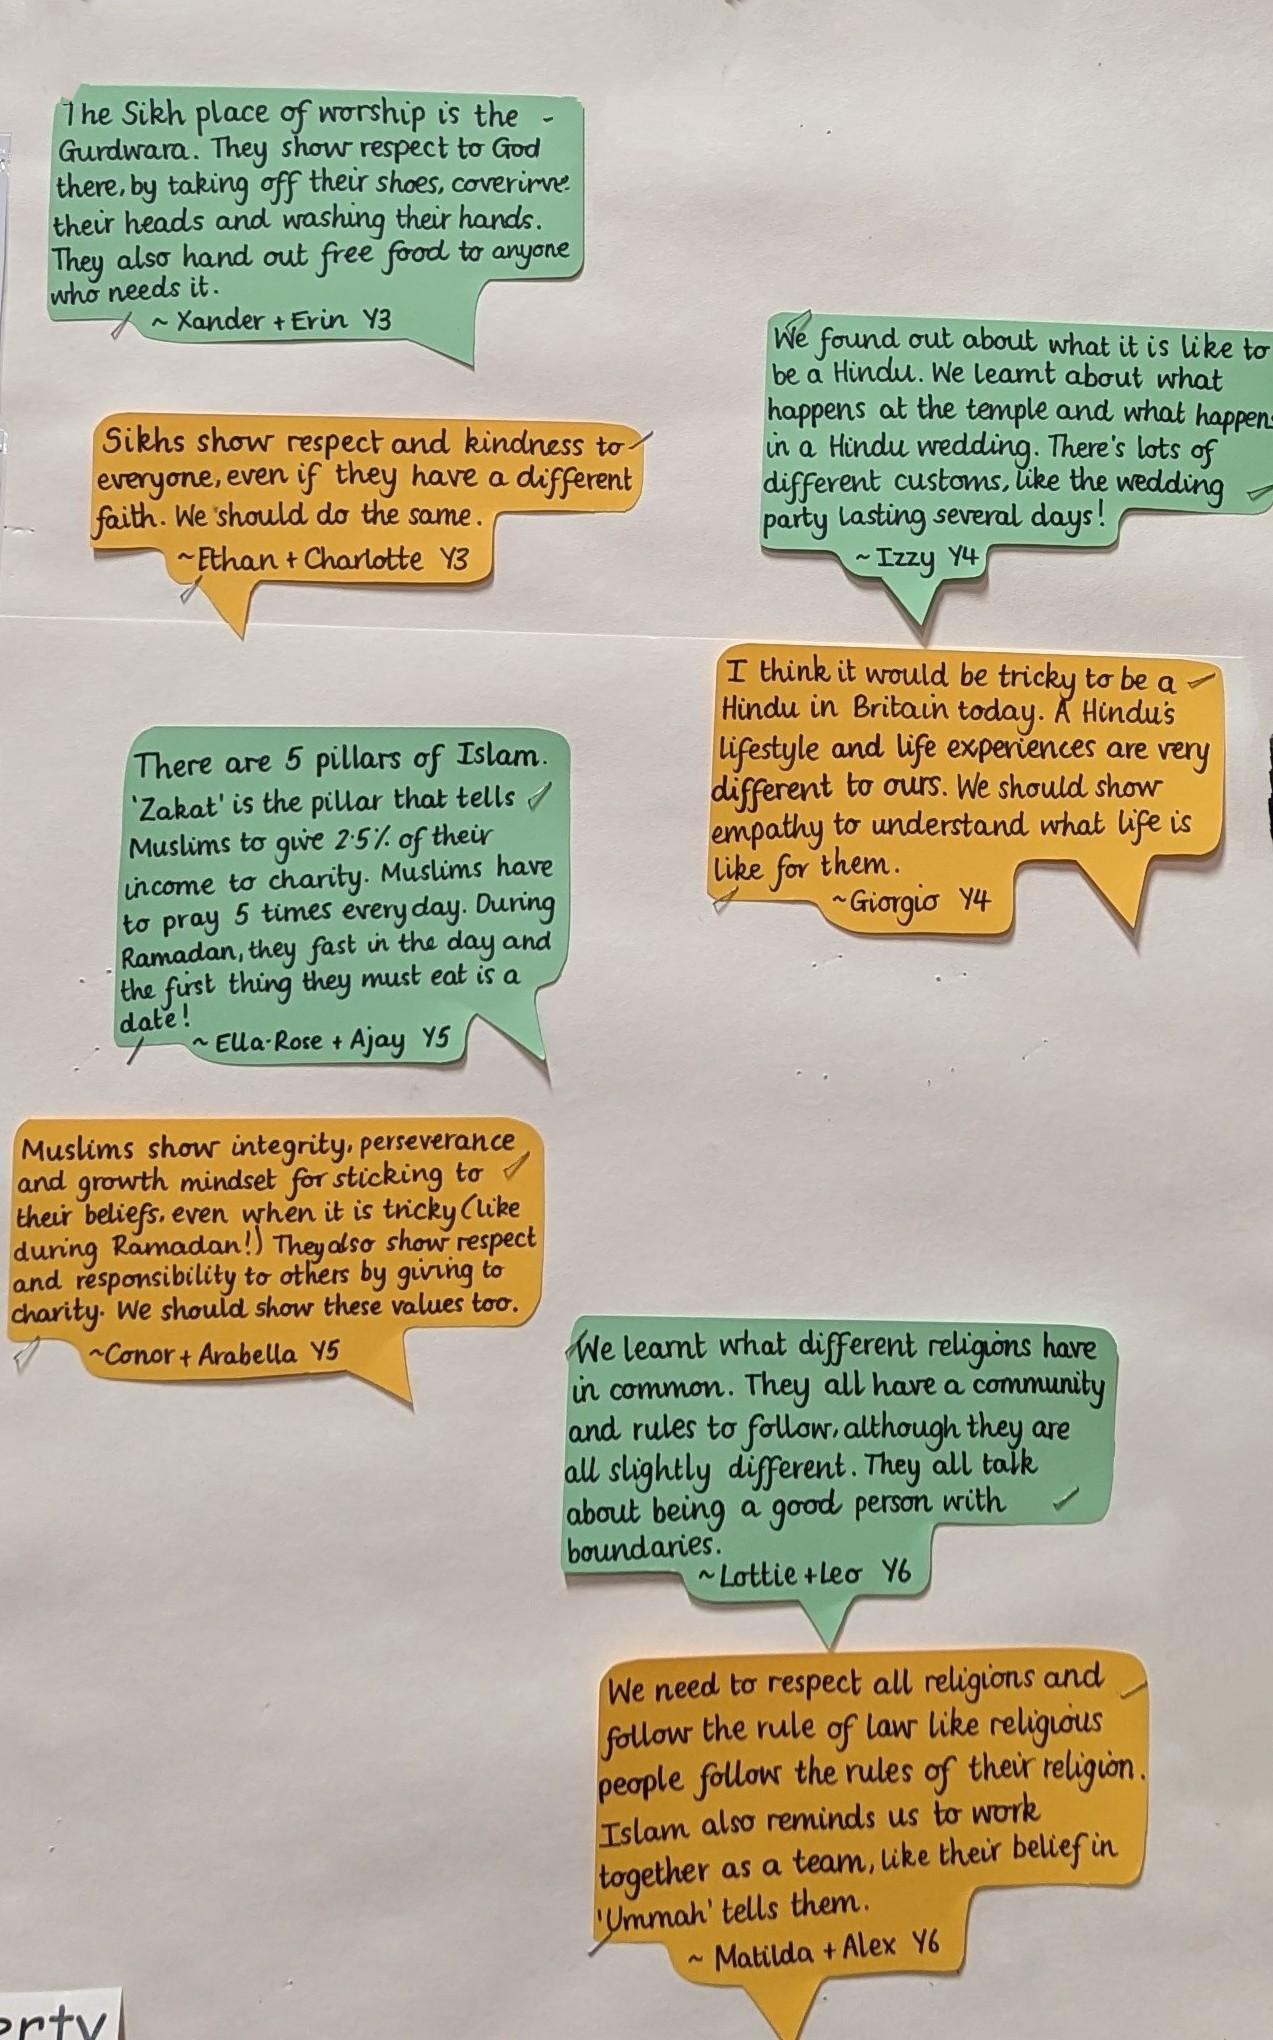 The Sikh place of worship is the
Gurdwara. They show respect to God
there, by taking off their shoes,
their heads and washing their hands.
They also hand out free food to anyone
who needs it.
~ Xander + Erin Y3
Sikhs show respect and kindness to
everyone, even if they have a different
faith. We should do the same.
~Ethan + Charlotte Y3
We found out about what it is like to
be a Hindu. We learnt about what
happens at the temple and what happens
in a Hindu wedding. There's lots of
different customs, like the wedding
party lasting several days!
~ Izzy Y4
I think it would be tricky to be a
Hindu in Britain today. A Hindu's
lifestyle and life experiences are very
different to ours. We should show
empathy to understand what life is
like for them.
~Giorgio Y4
There are 5 pillars of Islam.
'Zakat' is the pillar that tells
Muslims to give 2.5% of their
income to charity. Muslims have
to pray 5 times every day. During
Ramadan, they fast in the day and
the first thing they must eat is a
date!
~ Ella-Rose + Ajay Y5
Muslims show integrity, perseverance
and growth mindset for sticking to
their beliefs, even when it is tricky (like
during Ramadan!) They also show respect
and responsibility to others by giving to
charity. We should show these values too.
~Conor + Arabella Y5
We learnt what different religions have
in common. They all have a community
and rules to follow, although they are
all slightly different. They all talk
about being a good person with
boundaries.
~Lottie + Leo Y6
We need to respect all religions and
follow the rule of law like religious
people follow the rules of their religion.
Islam also reminds us to work
together as a team, like their belief in
'Ummah' tells them.
~ Matilda + Alex Y6
erty